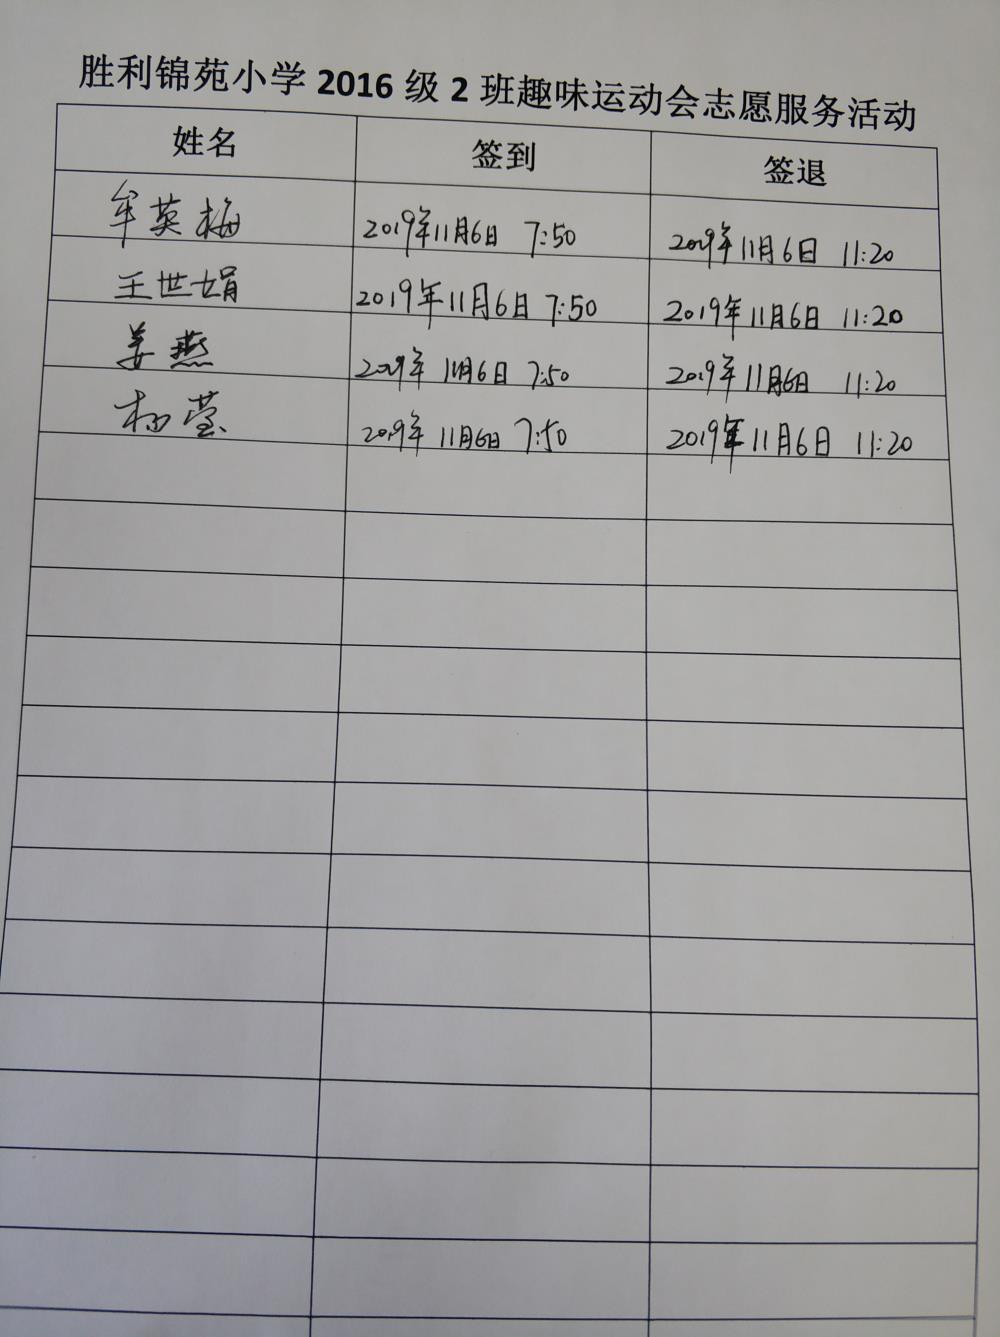 胜利锦苑小学 2016 级 2 班趣味运动会志愿服务活动
姓名 签到 签退
牟英梅 2019年11月6日 7:50 2019年11月6日 11:20
王世娟 2019年11月6日 7:50 2019年11月6日 11:20
姜燕 2019年11月6日 7:50 2019年11月6日 11:20
杨莹 2019年11月6日 7:50 2019年11月6日 11:20